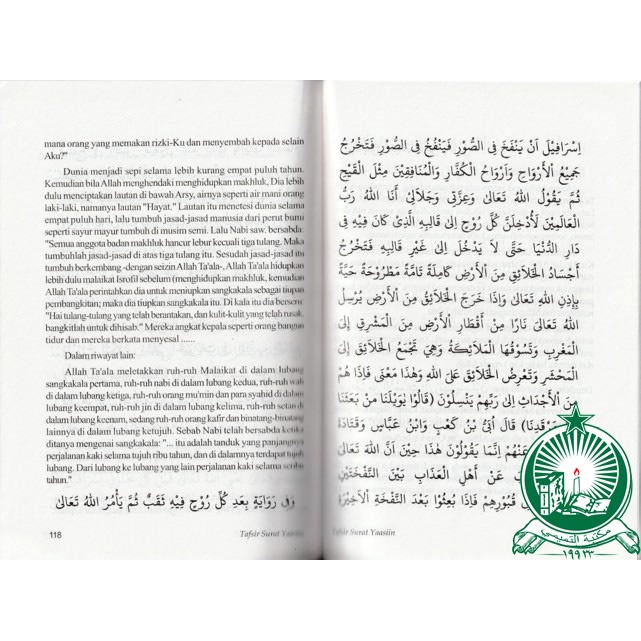 mana orang yang memakan rizki-Ku dan menyembah kepada selain
Aku?"
Dunia menjadi sepi selama lebih kurang empat puluh tahun.
Kemudian bila Allah menghendaki menghidupkan makhluk, Dia lebih
dulu menciptakan lautan di bawah Arsy, airnya seperti air mani orang
laki-laki, namanya lautan "Hayat". Lautan itu menetesi dunia selama
empat puluh hari, lalu tumbuh jasad-jasad manusia dari perut bumi
seperti sayur mayur tumbuh di musim semi. Lalu Nabi saw. bersabda:
"Semua anggota badan makhluk hancur lebur kecuali tiga tulang. Maka
tumbuhlah jasad-jasad di atas tiga tulang itu. Sesudah jasad-jasad itu
tumbuh berkembang -dengan seizin Allah Ta'ala-, Allah Ta'ala hidupkan
lebih dulu malaikat Isrofil sebelum (menghidupkan) makhluk, kemudian
Allah Ta'ala perintahkan dia untuk meniupkan sangkakala sebagai tiupan
pembangkitan; maka dia tiupkan sangkakala itu. Di kala itu dia berseru:
"Hai tulang-tulang yang telah berantakan, dan kulit-kulit yang telah rusak,
bangkitlah untuk dihisab." Mereka angkat kepala seperti orang bangun
tidur dan mereka berkata menyesal ......
Dalam riwayat lain:
Allah Ta'ala meletakkan ruh-ruh Malaikat di dalam lubang
sangkakala pertama, ruh-ruh nabi di dalam lubang kedua, ruh-ruh wali
di dalam lubang ketiga, ruh-ruh orang mu'min dan para syahid di dalam
lubang keempat, ruh-ruh jin di dalam lubang kelima, ruh-ruh setan di
dalam lubang keenam, sedang ruh-ruh orang kafir dan binatang-binatang
lainnya di dalam lubang ketujuh. Sebab Nabi telah bersabda ketika
ditanya mengenai sangkakala: "... itu adalah tanduk yang panjangnya
perjalanan kaki selama tujuh ribu tahun, dan di dalamnya terdapat tujuh
lubang. Dari lubang ke lubang yang lain perjalanan kaki selama seribu
tahun."
وَفِى رِوَايَةٍ بِعَدِ كُلِّ رُوْحٍ فِيْهِ ثَقَبٌ ثُمَّ يَأْمُرُ اللهُ تَعَالَى
118
Tafsir Surat Yaasiin
اِسْرَافِيْلَ اَنْ يَنْفُخَ فِى الصُّوْرِ فَيَنْفُخُ فِى الصُّوْرِ فَتَخْرُجُ
جَمِيْعُ الْأَرْوَاحِ وَاَرْوَاحُ الْكُفَّارِ وَالْمُنَافِقِيْنَ مِثْلُ الْقَيْحِ
ثُمَّ يَقُوْلُ اللهُ تَعَالَى وَعِزَّتِى وَجَلَالِى أَنَا اللهُ رَبُّ
الْعَالَمِيْنَ لَأُدْخِلَنَّ كُلَّ رُوْحٍ اِلَى قَالِبِهِ الَّذِى كَانَ فِيْهِ فِى
دَارِ الدُّنْيَا حَتَّى لَا يَدْخُلَ اِلَى غَيْرِ قَالِبِهِ فَتَخْرُجُ
أَجْسَادُ الْخَلَائِقِ مِنَ الْأَرْضِ كَامِلَةً تَامَّةً مَطْرُوْحَةً حَيَّةً
بِاِذْنِ اللهِ تَعَالَى وَاِذَا خَرَجَ الْخَلَائِقُ مِنَ الْأَرْضِ يُرْسِلُ
اللهُ تَعَالَى نَارًا مِنْ أَقْطَارِ الْأَرْضِ مِنَ الْمَشْرِقِ اِلَى
الْمَغْرِبِ وَتَسُوْقُهَا الْمَلَائِكَةُ وَهِيَ تَجْمَعُ الْخَلَائِقَ اِلَى
الْمَحْشَرِ وَتَعْرِضُ الْخَلَائِقَ عَلَى اللهِ وَهٰذَا مَعْنَى فَاِذَا هُمْ
مِنَ الْأَجْدَاثِ اِلَى رَبِّهِمْ يَنْسِلُوْنَ (قَالُوْا يٰوَيْلَنَا مَنْ بَعَثَنَا
مَرْقَدِنَا) قَالَ أُبَيُّ بْنُ كَعْبٍ وَابْنُ عَبَّاسٍ وَقَتَادَةُ
عَنْهُمْ اِنَّمَا يَقُوْلُوْنَ هٰذَا حِيْنَ أَنَّ اللهَ تَعَالَى
عَنْ أَهْلِ الْعَذَابِ بَيْنَ النَّفْخَتَيْنِ
قُبُوْرِهِمْ فَاِذَا بُعِثُوْا بَعْدَ النَّفْخَةِ الْأَخِيْرَةِ
Tafsir Surat Yaasiin
١٩٩٢٣